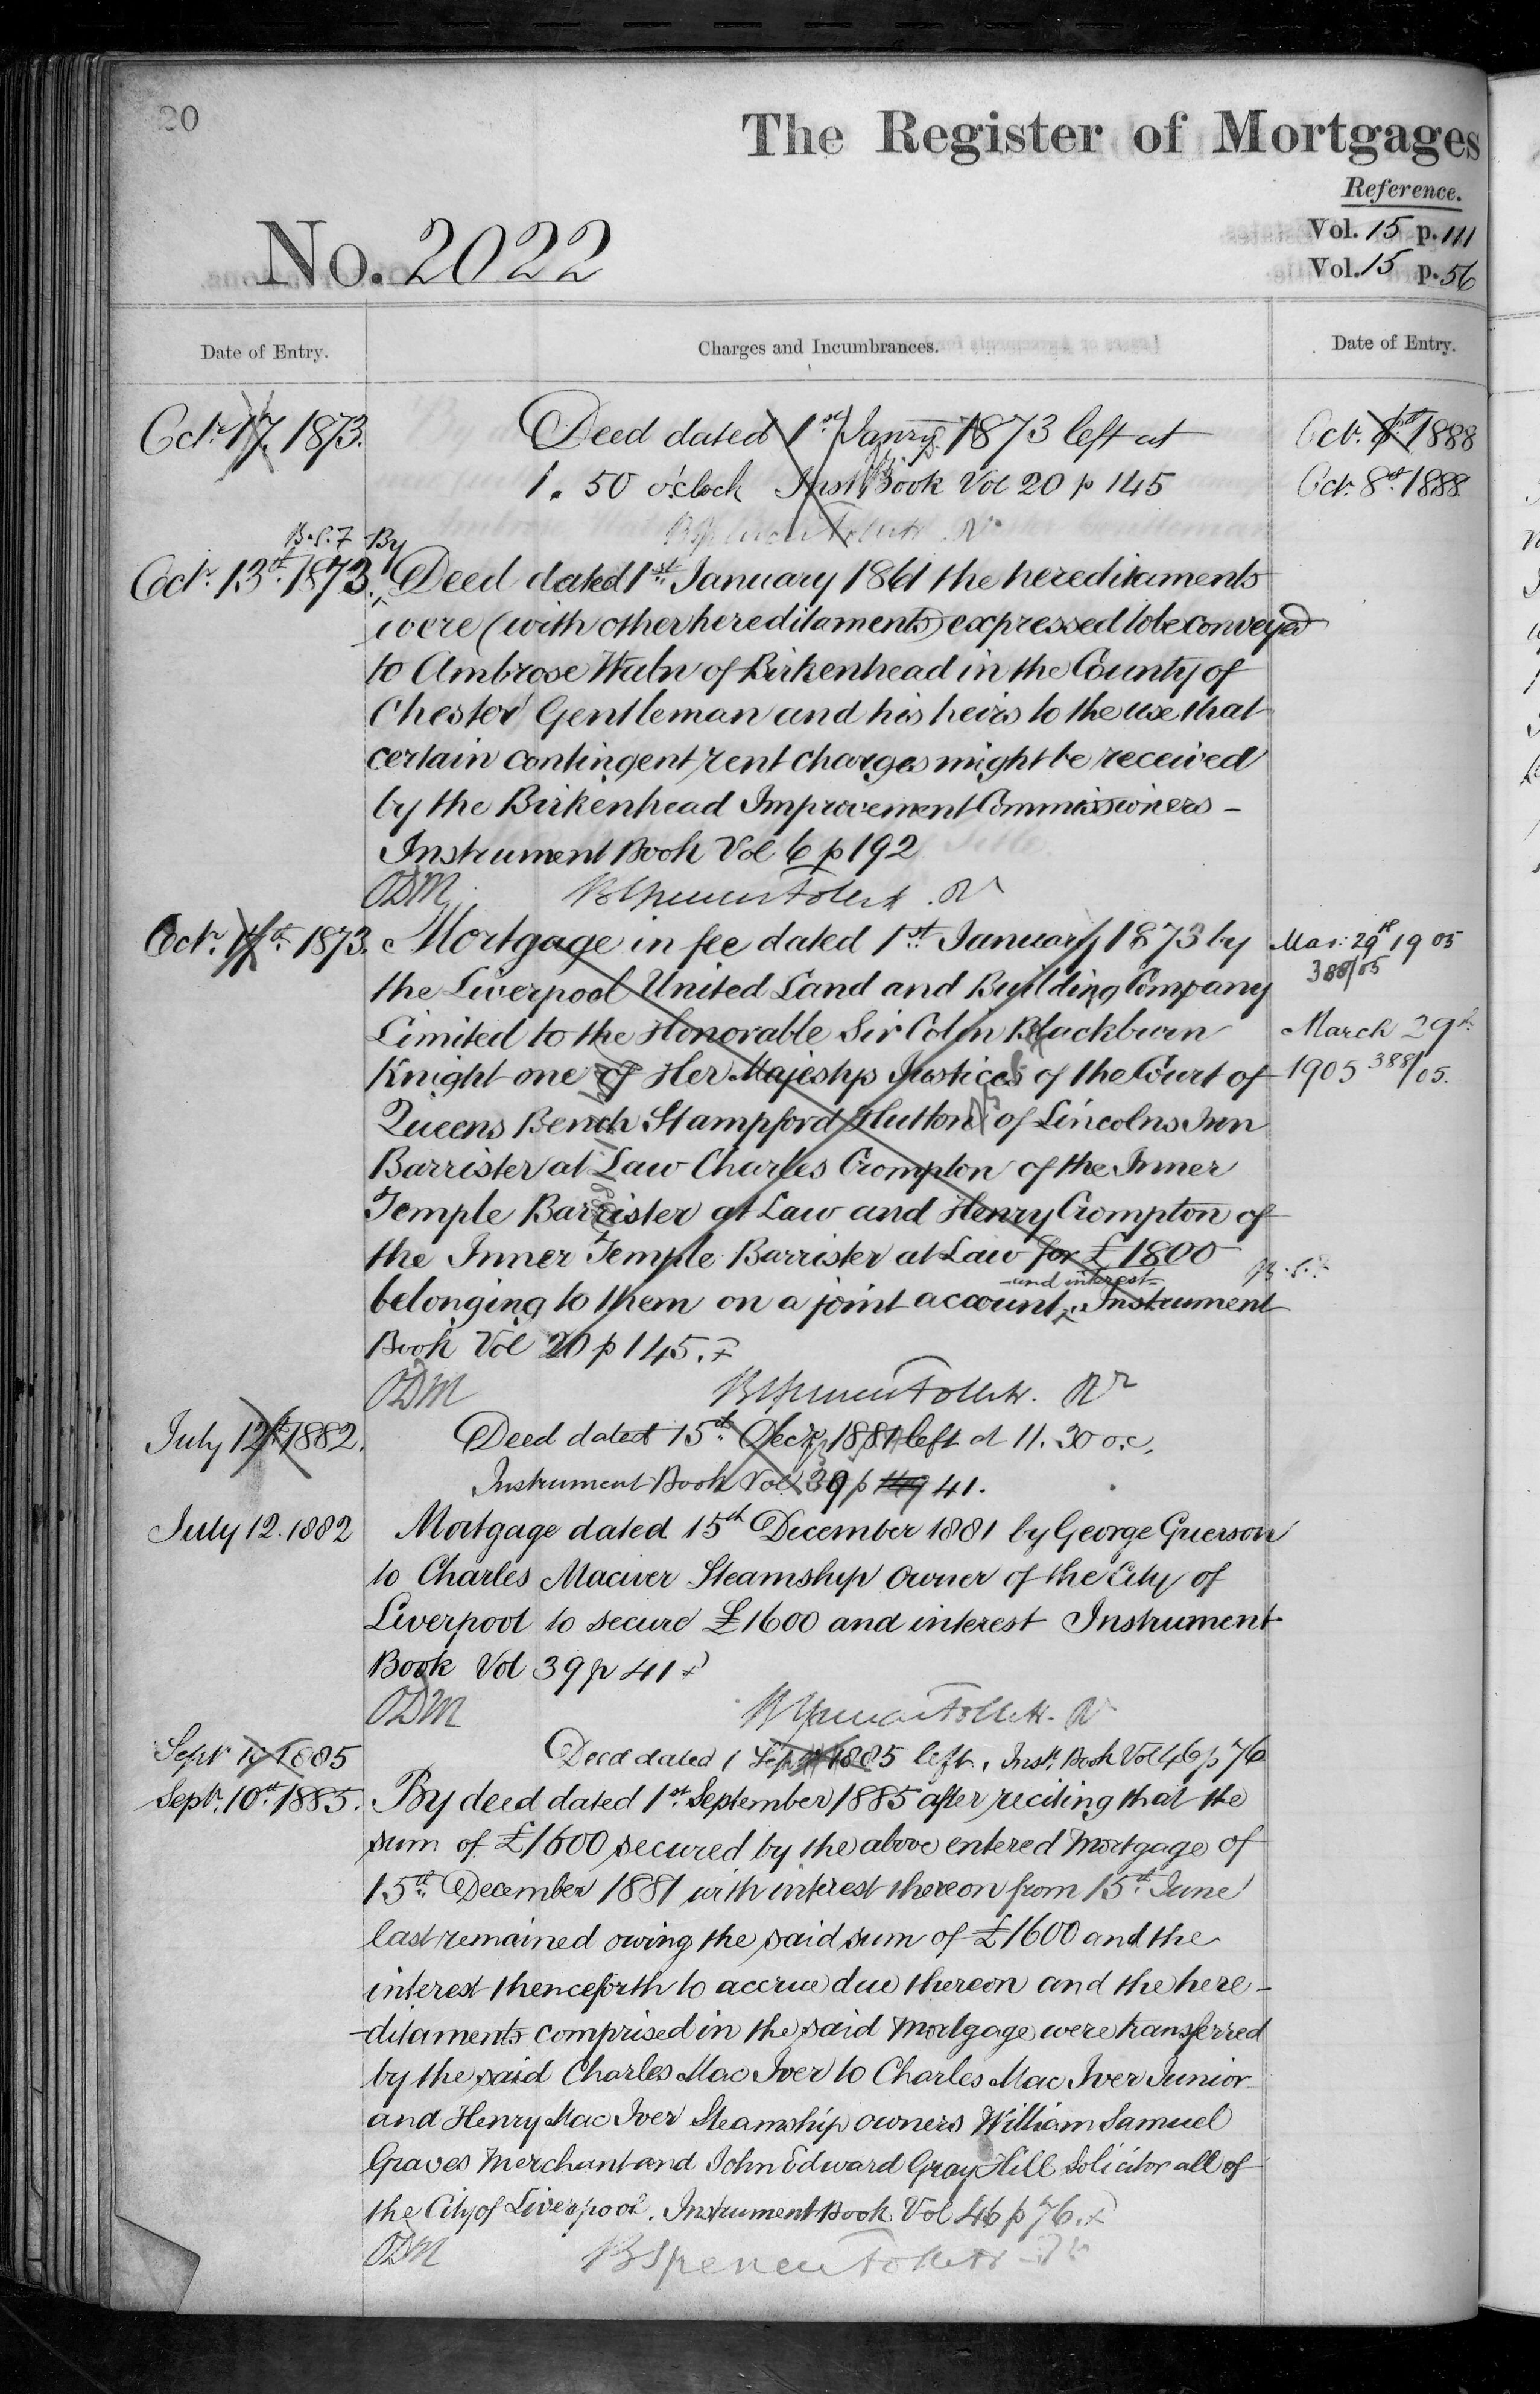 20
The Register of Mortgages
Reference.
Vol. 15 p. 111
No. 2022
Vol. 15 p. 56
Date of Entry.
Charges and Incumbrances.
Date of Entry.
Octr. 17. 1873.
Deed dated 1st Janry. 1873 left at
Oct. 1888
1. 50 o'clock Inst. Book Vol 20 p 145
Oct. 8th 1888
B.S.F By
Octr. 13th 1873. Deed dated 1st January 1861 the hereditaments
were (with other hereditaments) expressed to be conveyed
to Ambrose Waln of Birkenhead in the County of
Chester Gentleman and his heirs to the use that
certain contingent rent charges might be received
by the Birkenhead Improvement Commissioners -
Instrument Book Vol 6 p 192
ODM B Spencer Follett. Rr
Octr. 17th 1873. Mortgage in fee dated 1st January 1873 by
Mar: 29th 1905
388/05
the Liverpool United Land and Building Company
Limited to the Honorable Sir Colin Blackburn
March 29th
Knight one of Her Majestys Justices of the Court of
1905 388/05.
Queens Bench Stampford Hutton of Lincolns Inn
Barrister at Law Charles Crompton of the Inner
Temple Barrister at Law and Henry Crompton of
the Inner Temple Barrister at Law for £1800
B.S.F
and interest
belonging to them on a joint account. Instrument
Book Vol 20 p 145.
ODM B Spencer Follett. Rr
July 12th 1882. Deed dated 15th Decr. 1881 left at 11. 30 o.c.
Instrument Book Vol 39 p 41.
July 12. 1882 Mortgage dated 15th December 1881 by George Grierson
to Charles Maciver Steamship Owner of the City of
Liverpool to secure £1600 and interest Instrument
Book Vol 39 p 41
ODM B Spencer Follett. Rr
Sept 1885 Deed dated 1 Sept 1885 left. Inst. Book Vol 46 p 76
Sept. 10th 1885. By deed dated 1st September 1885 after reciting that the
sum of £1600 secured by the above entered Mortgage of
15th December 1881 with interest thereon from 15th June
last remained owing the said sum of £1600 and the
interest thenceforth to accrue due thereon and the here-
-ditaments comprised in the said Mortgage were transferred
by the said Charles Mac Iver to Charles Mac Iver Junior
and Henry Mac Iver Steamship owners William Samuel
Graves Merchant and John Edward Gray Hill Solicitor all of
the City of Liverpool. Instrument Book Vol 46 p 76.
ODM B Spencer Follett Rr